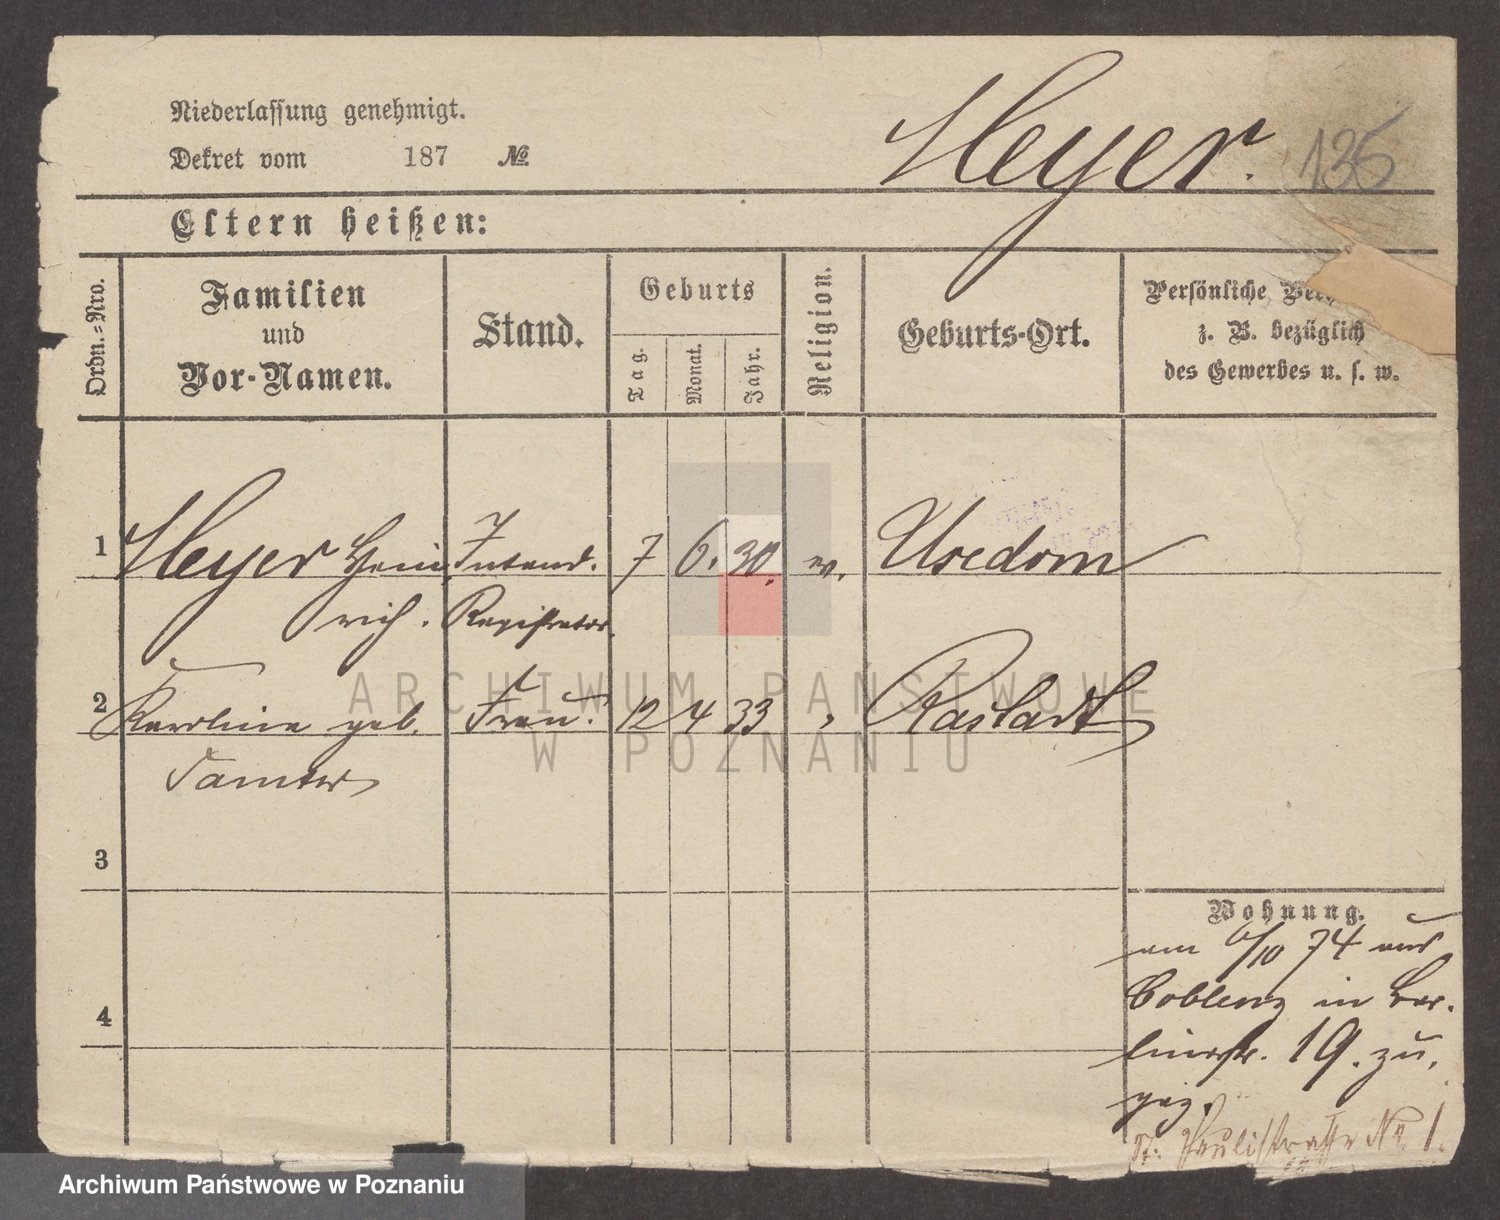 Niederlassung genehmigt.
Dekret vom 187 №
Heyer. 136
Eltern heißen:
Ordn.=Nro.
Familien
und
Vor-Namen.
Stand.
Geburts
Tag.
Monat.
Jahr.
Religion.
Geburts-Ort.
Persönliche
z. B. bezüglich
des Gewerbes u. s. w.
1 Heyer Hein Intend. 7 6. 30. ev. Usedom
rich. Registrator.
2 Karoline geb. Frau. 12 4 33 " Rastadt
ARCHIWUM PAŃSTWOWE
W POZNANIU
3
4
Wohnung.
am 6/10 74 aus
Coblenz in Ber.
linerstr. 19. zu.
gez.
St. Paulistrasse No. 1.
Archiwum Państwowe w Poznaniu